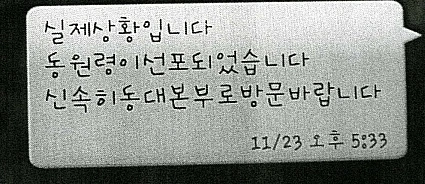 실제상황입니다
동원령이선포되었습니다
신속히동대본부로방문바랍니다
11/23 오후 5:33